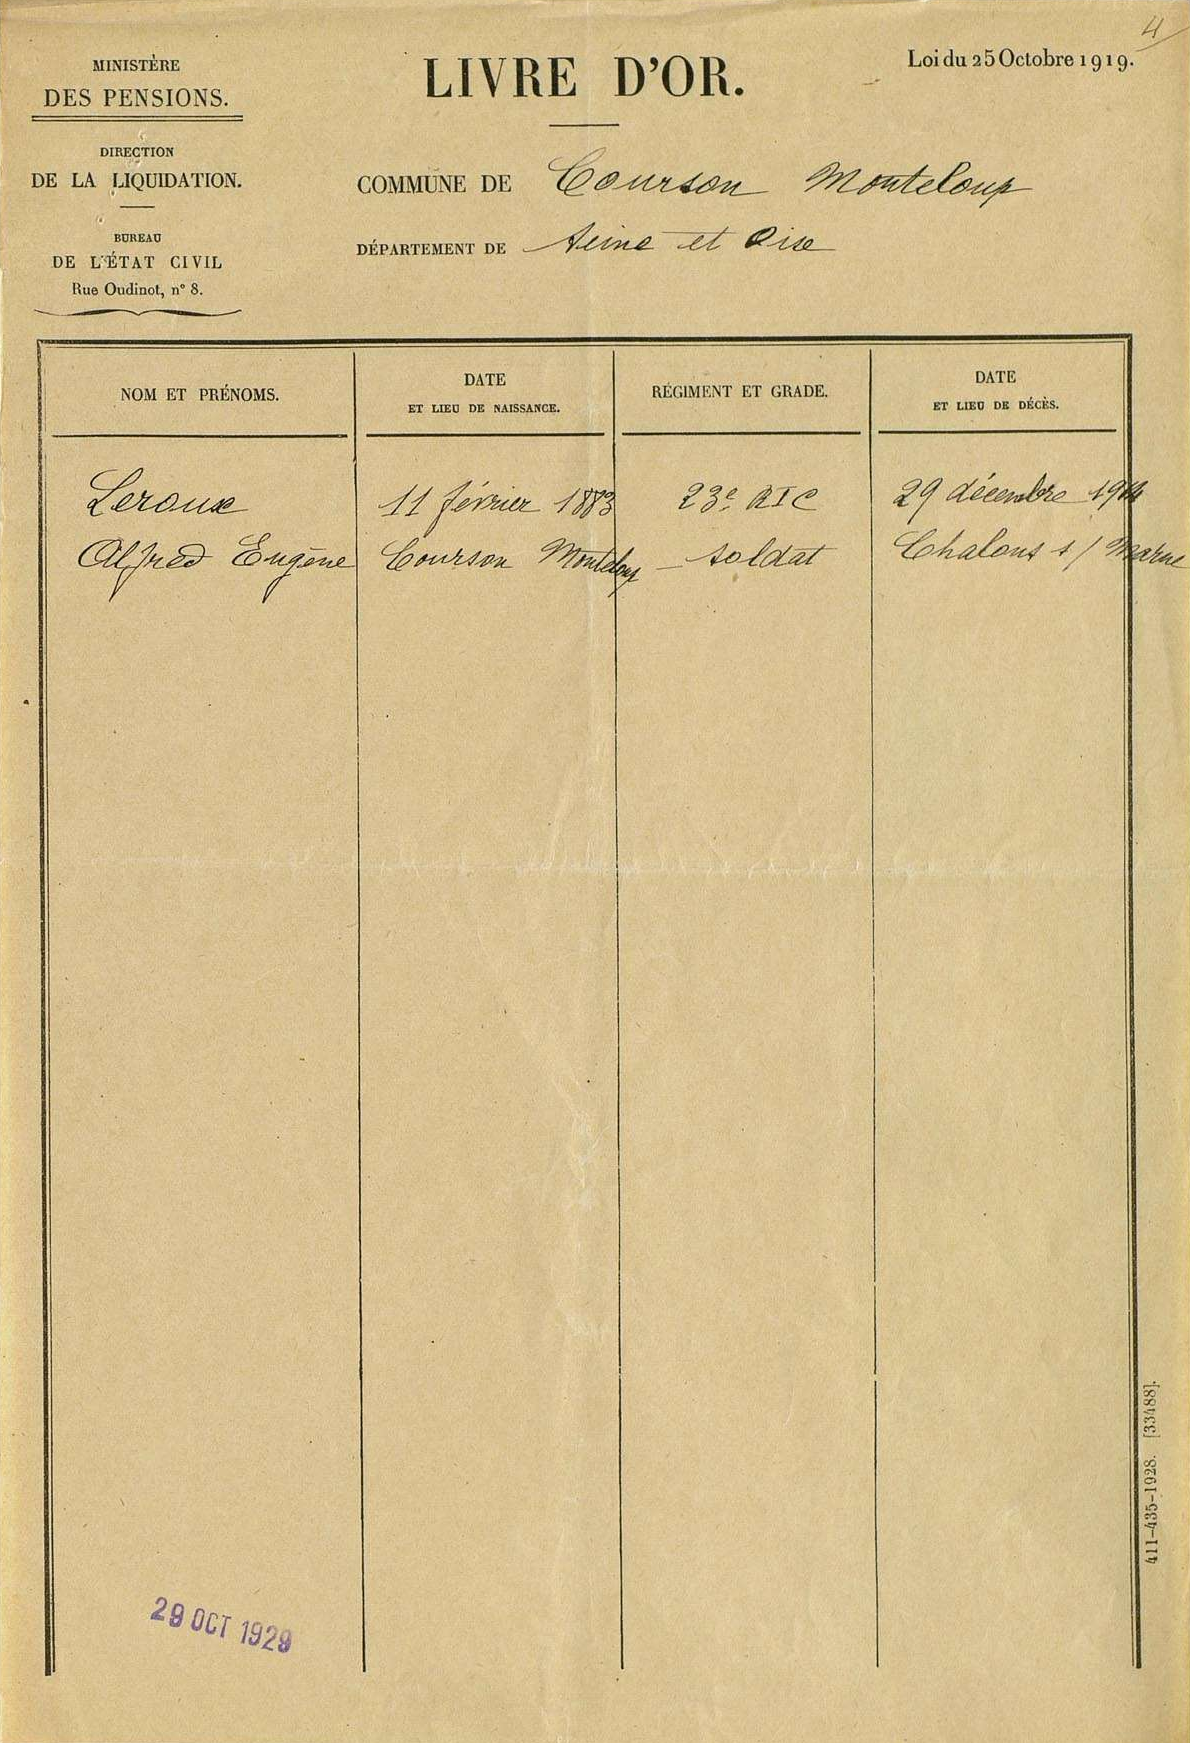 4
MINISTÈRE
DES PENSIONS.
DIRECTION
DE LA LIQUIDATION.
BUREAU
DE L'ÉTAT CIVIL
Rue Oudinot, n° 8.
LIVRE D'OR.
Loi du 25 Octobre 1919.
COMMUNE DE Courson Monteloup
DÉPARTEMENT DE Seine et Oise
NOM ET PRÉNOMS.
DATE
ET LIEU DE NAISSANCE.
RÉGIMENT ET GRADE.
DATE
ET LIEU DE DÉCÈS.
Leroux 11 février 1883 23e RIC 29 décembre 1914
Alfred Eugène Courson Monteloup - soldat Chalons s/ Marne
29 OCT 1929
411-435-1928. [33488].